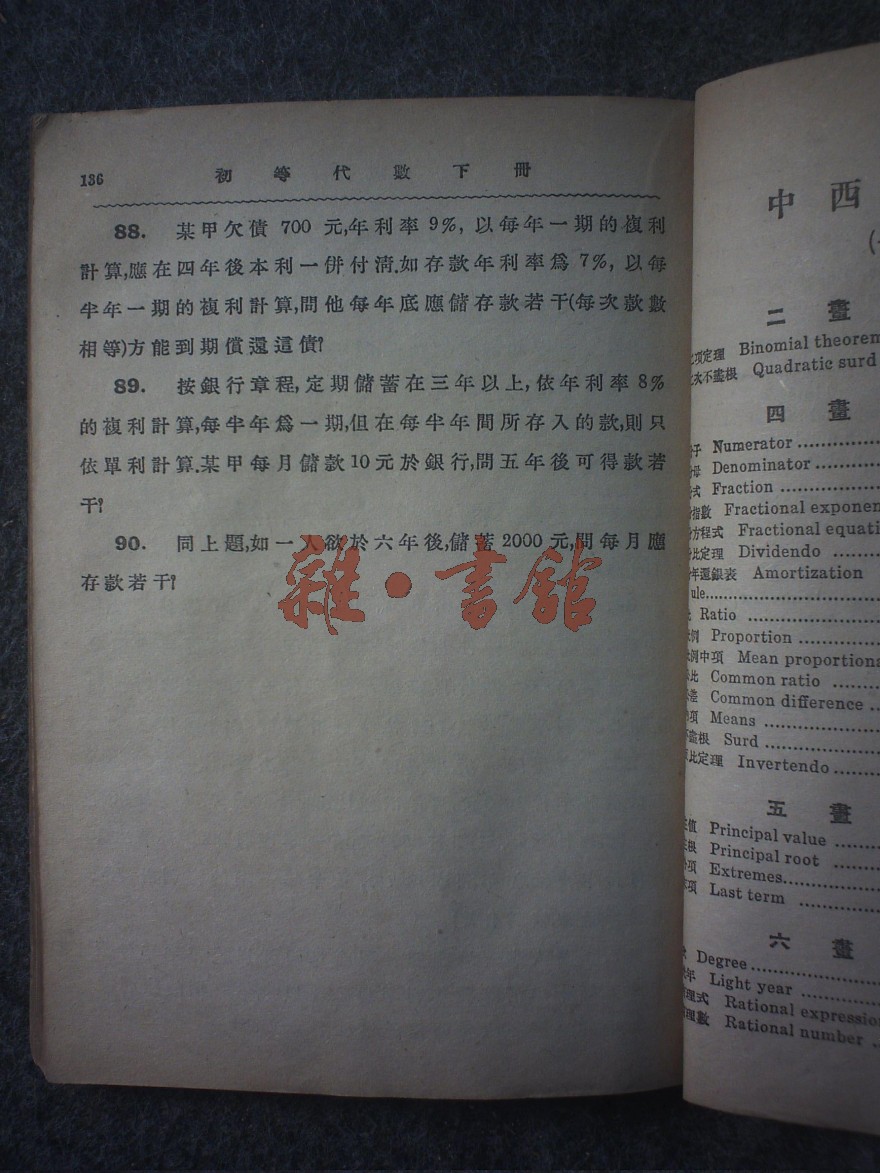 136 初等代數下冊
88. 某甲欠債 700 元,年利率 9%, 以每年一期的複利
計算,應在四年後本利一併付淸.如存款年利率爲 7%, 以每
半年一期的複利計算,問他每年底應儲存款若干(每次款數
相等)方能到期償還這債?
89. 按銀行章程,定期儲蓄在三年以上,依年利率 8%
的複利計算,每半年爲一期,但在每半年間所存入的款,則只
依單利計算.某甲每月儲款10元於銀行,問五年後可得款若
干?
90. 同上題,如一人欲於六年後,儲蓄 2000 元,問每月應
存款若干?
雜·書館
中西
二畫
項定理 Binomial theorem
次不盡根 Quadratic surd
四畫
子 Numerator
母 Denominator
式 Fraction
指數 Fractional exponen
方程式 Fractional equati
比定理 Dividendo
年還銀表 Amortization
ule
Ratio
例 Proportion
例中項 Mean proportiona
比 Common ratio
差 Common difference
項 Means
盡根 Surd
比定理 Invertendo
五畫
值 Principal value
根 Principal root
項 Extremes
項 Last term
六畫
Degree
年 Light year
理式 Rational expression
理數 Rational number